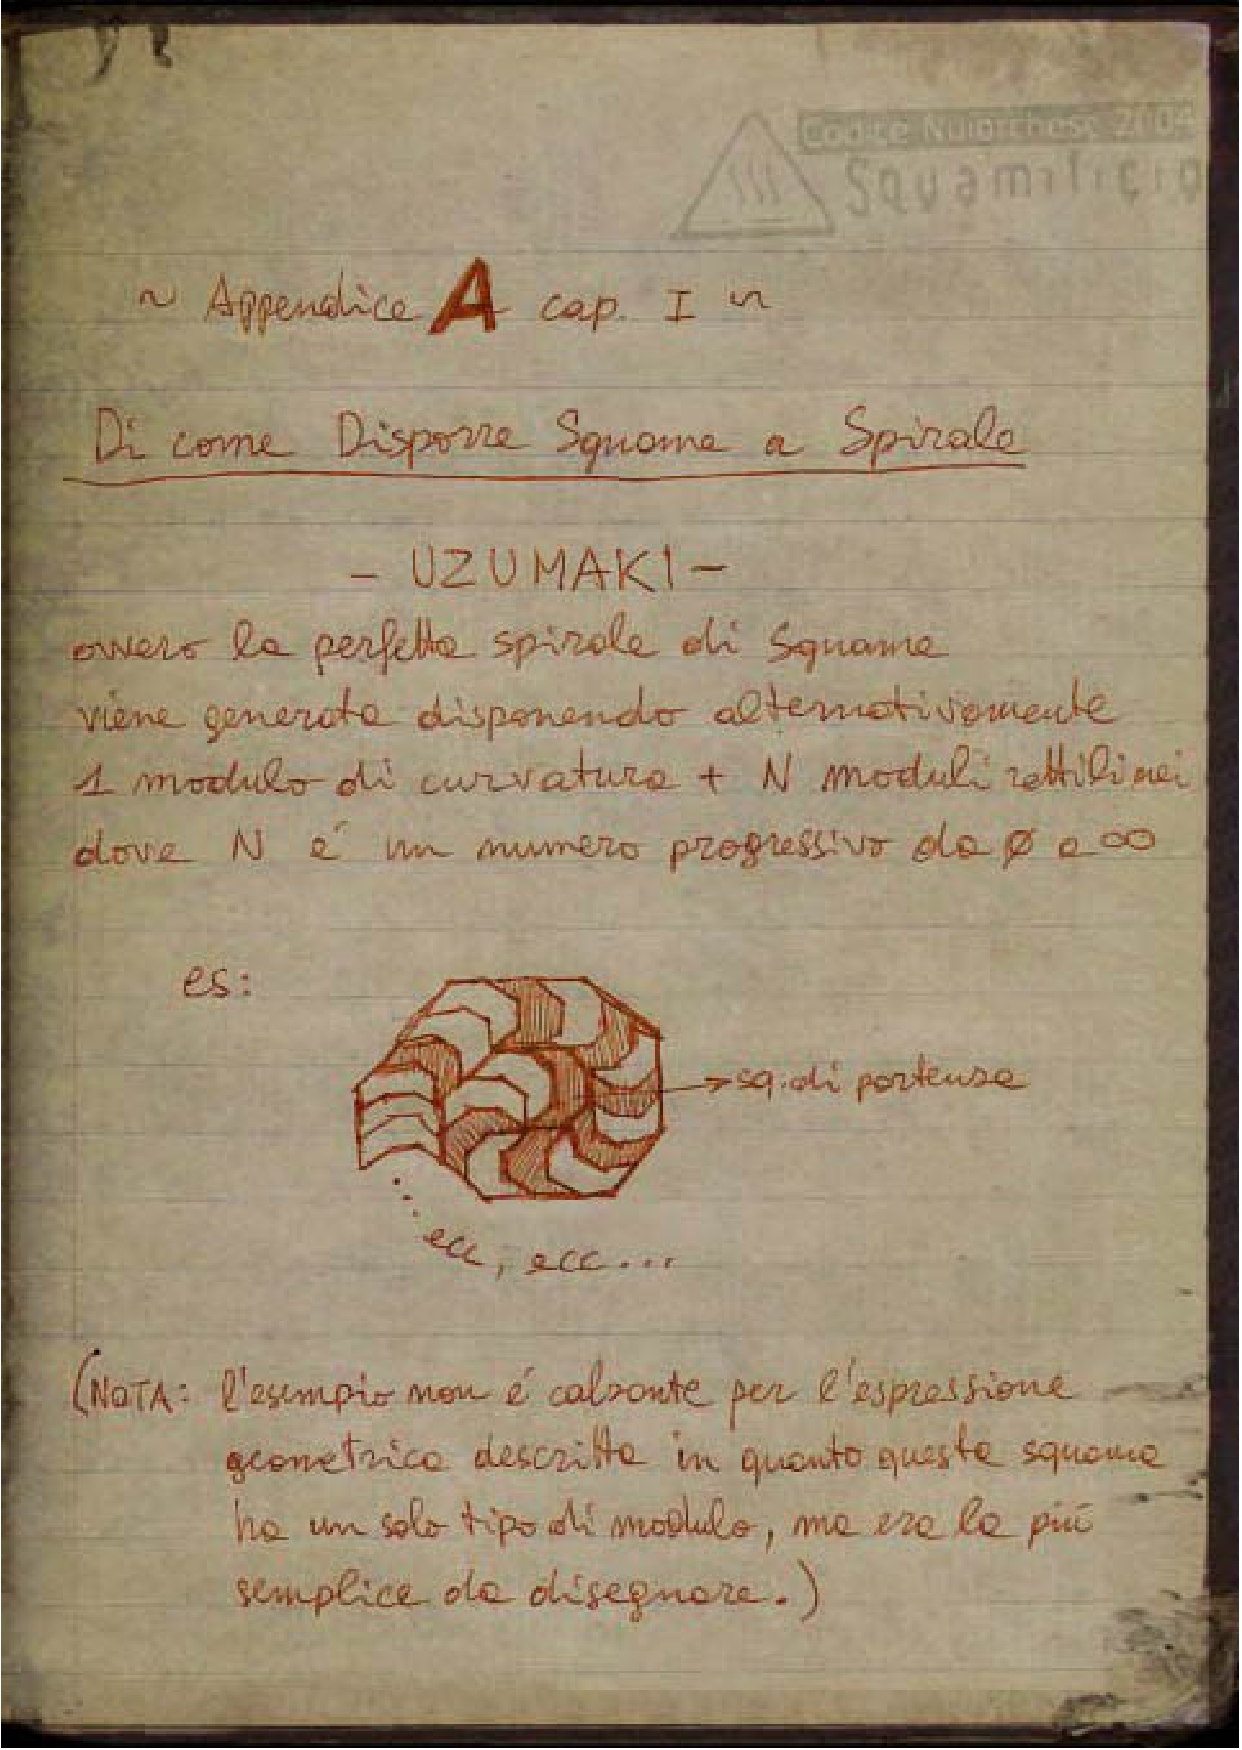 Codice Nuiorchese 2004
Squamificio
~ Appendice A cap. I ~
Di come Disporre Squame a Spirale
- UZUMAKI -
ovvero la perfetta spirale di Squame
viene generata disponendo alternativamente
1 modulo di curvatura + N moduli rettilinei
dove N é un numero progressivo da Ø a ∞
es:
→ sq. di partenza
ecc, ecc...
(NOTA: l'esempio non é calzante per l'espressione
geometrica descritta in quanto questa squama
ha un solo tipo di modulo, ma era la piú
semplice da disegnare.)